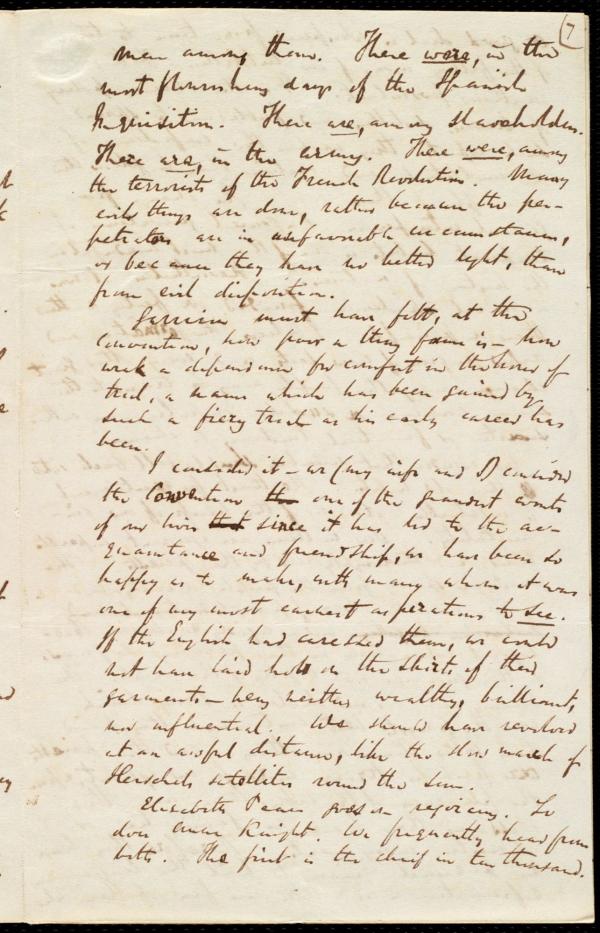 7
men among them. There were, in the
most flourishing days of the Spanish
Inquisition. There are, among slaveholders.
There are, in the army. There were, among
the terrorists of the French Revolution. Many
evil things are done, rather because the per-
petrators are in unfavorable circumstances,
or because they have no better light, than
from evil disposition.
Garrison must have felt, at the
Convention, how poor a thing fame is – how
weak a dependence for comfort in the hour of
trial, a name which has been gained by
such a fiery trial as his early career has
been.
I consider it – we (my wife and I) consider
the Convention the one of the grandest events
of our lives that since it has led to the ac-
quaintance and friendship, we have been so
happy as to make, with many whom it was
one of my most earnest aspirations to see.
If the English had caressed them, we could
not have laid hold on the skirts of their
garments – being neither wealthy, brilliant,
nor influential. We should have revolved
at an awful distance, like the slow march of
Herschel's satellites round the sun.
Elizabeth Pease goes on rejoicing. So
does Anne Knight. We frequently hear from
both. The first is the chief in ten thousand.